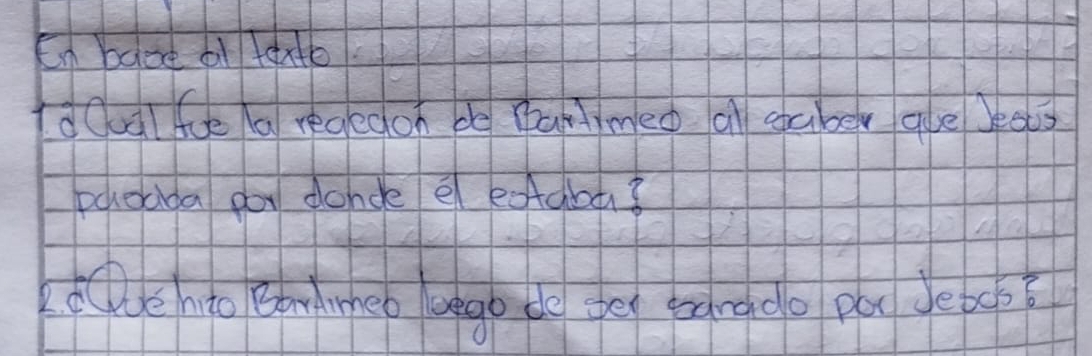 En base al texto
1. ¿Cuál fue la reacción de Bartimeo al saber que Jesús
pasaba por donde él estaba?
2. ¿Qué hizo Bartimeo luego de ser sanado por Jesús?